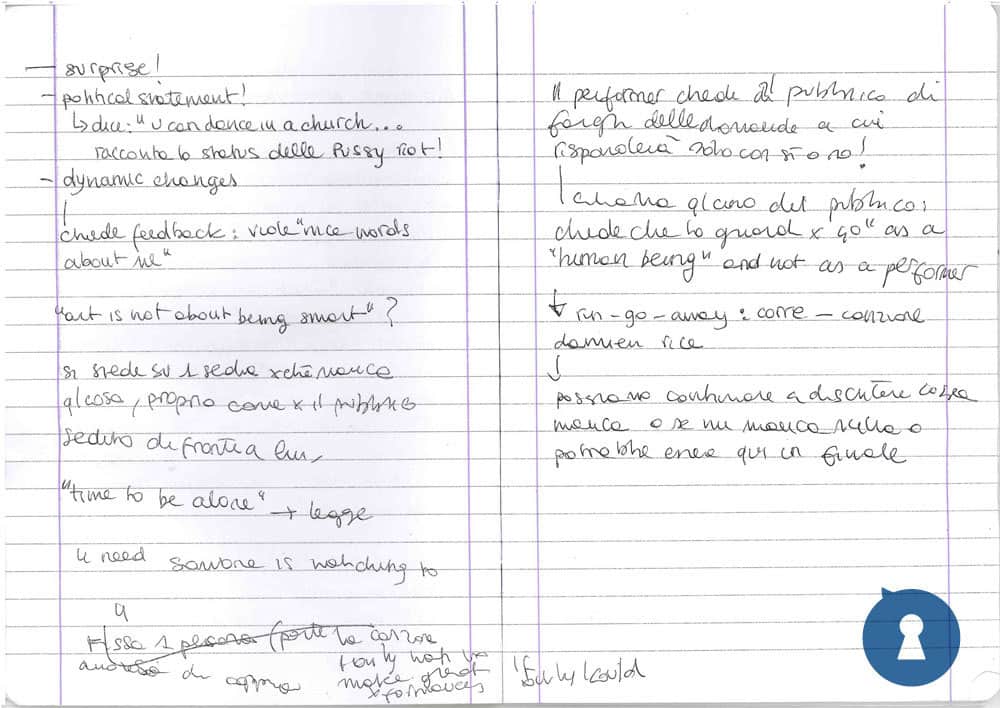 — surprise!
- political statement!
↳ dice: "u can dance in a church...
racconta lo status delle Pussy riot!
- dynamic changes
chiede feedback: vuole "nice words
about me"
"art is not about being smart"?
si siede su 1 sedia xchè manca
qlcosa, proprio come x il pubblico
seduto di fronte a lui,
"time to be alone" → legge
u need someone is watching to
u
Fissa 1 persona (parte la canzone
di
I only wish to
make great
xformances
"if only I could
Il performer chiede al pubblico di
fargli delle domande a cui
risponderà solo con sì o no!
chiama qlcuno del pubblico;
chiede che lo guardi x 90" as a
"human being" and not as a performer
↓ run-go-away: corre - canzone
damien rice
↓
possiamo continuare a discutere cosa
manca o se nu manca nulla o
potrebbe essere qui un finale